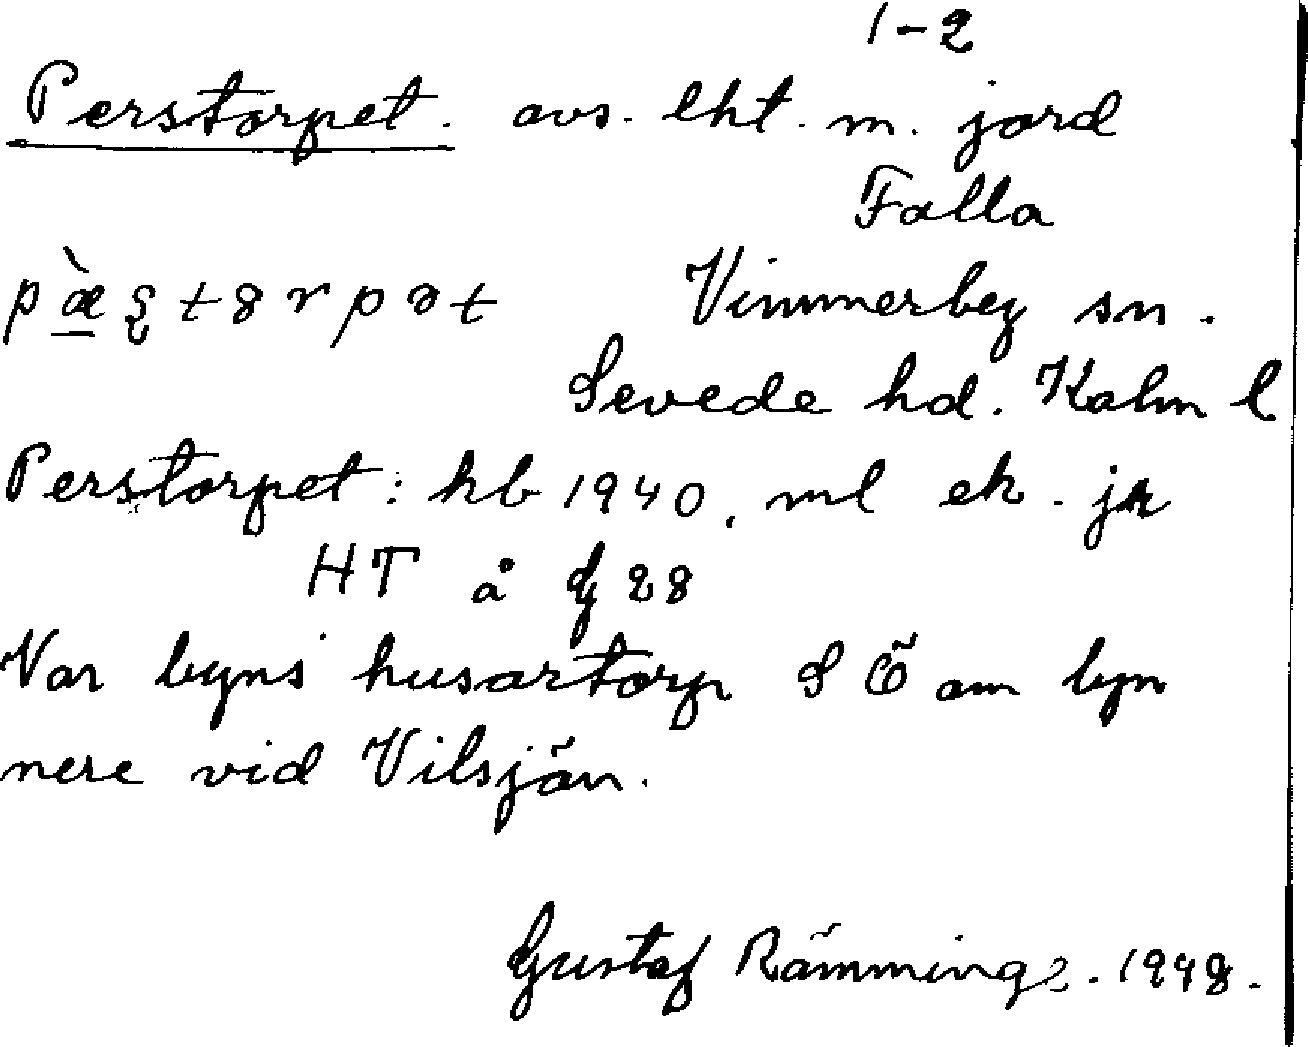 1-2
Perstorpet. avs. lht. m. jord
Falla
pæ̀ʂt8rpət Vimmerby sn.
Sevede hd. Kalm l
Perstorpet: hb 1940, ml ek. jr
HT å G 28
Var byns husartorp S Ö om byn
nere vid Vilsjön.
Gustaf Rämminge. 1948.